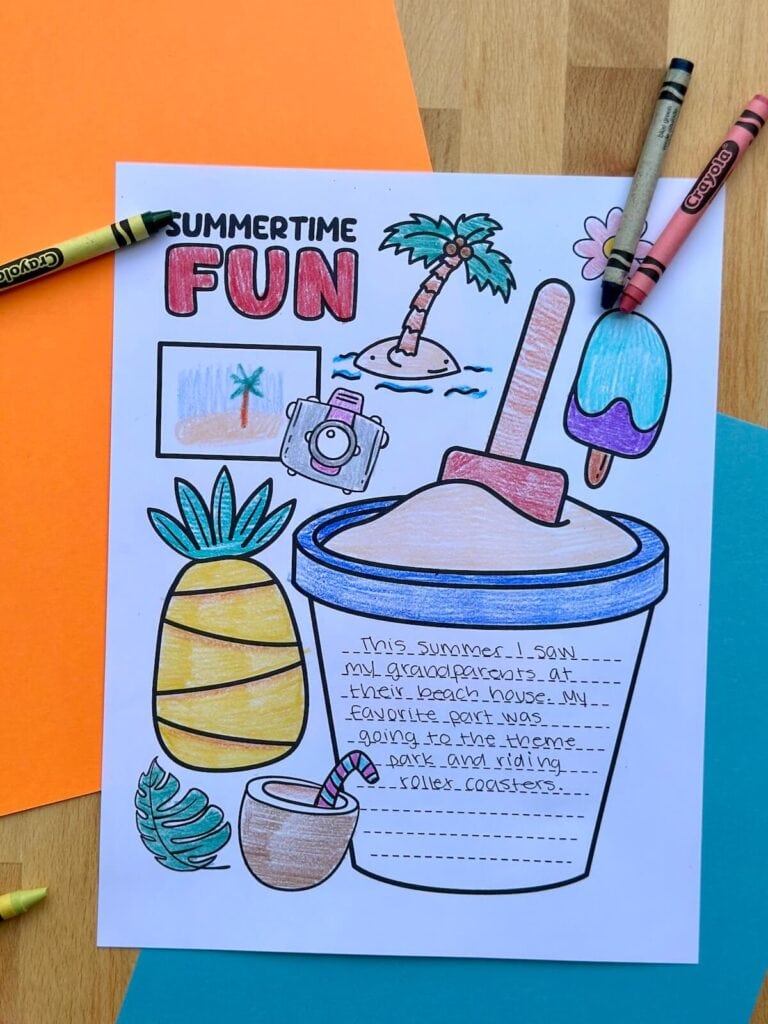 SUMMERTIME
FUN
Crayola
blue green
Crayola
This summer I saw
my grandparents at
their beach house. My
favorite part was
going to the theme
park and riding
roller coasters.